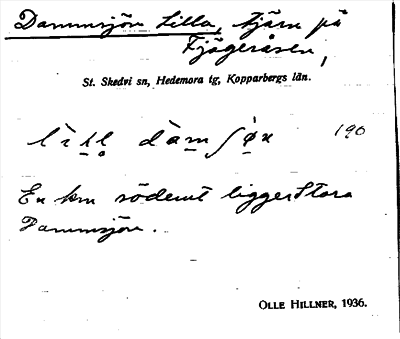 Dammsjön Lilla, tjärn på
Fjägeråsen,
St. Skedvi sn, Hedemora tg, Kopparbergs län.
190
En km söderut ligger Stora
Dammsjön.
OLLE HILLNER, 1936.